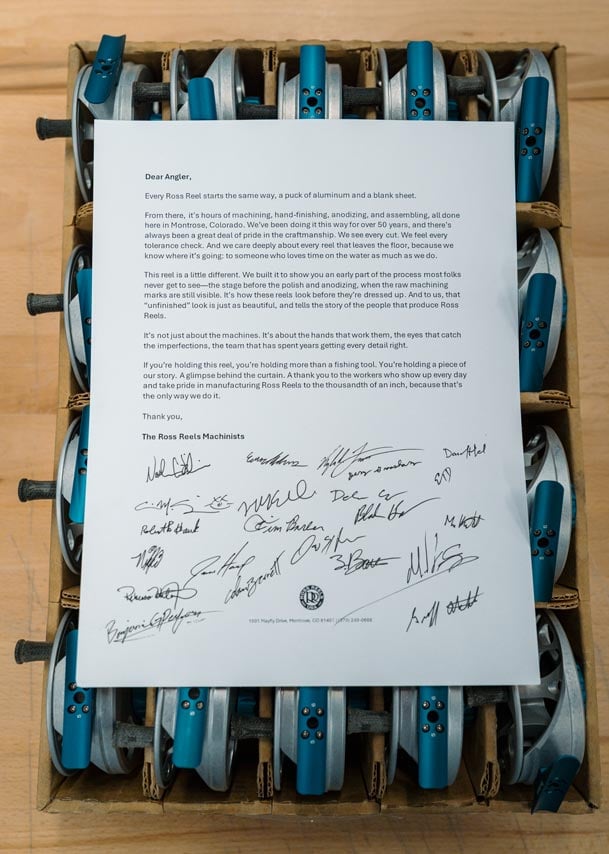 Dear Angler,
Every Ross Reel starts the same way, a puck of aluminum and a blank sheet.
From there, it's hours of machining, hand-finishing, anodizing, and assembling, all done
here in Montrose, Colorado. We've been doing it this way for over 50 years, and there's
always been a great deal of pride in the craftmanship. We see every cut. We feel every
tolerance check. And we care deeply about every reel that leaves the floor, because we
know where it's going: to someone who loves time on the water as much as we do.
This reel is a little different. We built it to show you an early part of the process most folks
never get to see—the stage before the polish and anodizing, when the raw machining
marks are still visible. It's how these reels look before they're dressed up. And to us, that
"unfinished" look is just as beautiful, and tells the story of the people that produce Ross
Reels.
It's not just about the machines. It's about the hands that work them, the eyes that catch
the imperfections, the team that has spent years getting every detail right.
If you're holding this reel, you're holding more than a fishing tool. You're holding a piece of
our story. A glimpse behind the curtain. A thank you to the workers who show up every day
and take pride in manufacturing Ross Reels to the thousandth of an inch, because that's
the only way we do it.
Thank you,
The Ross Reels Machinists
Tim Barber
Adam Barnett
Mayfly Drive, Montrose, CO 81401